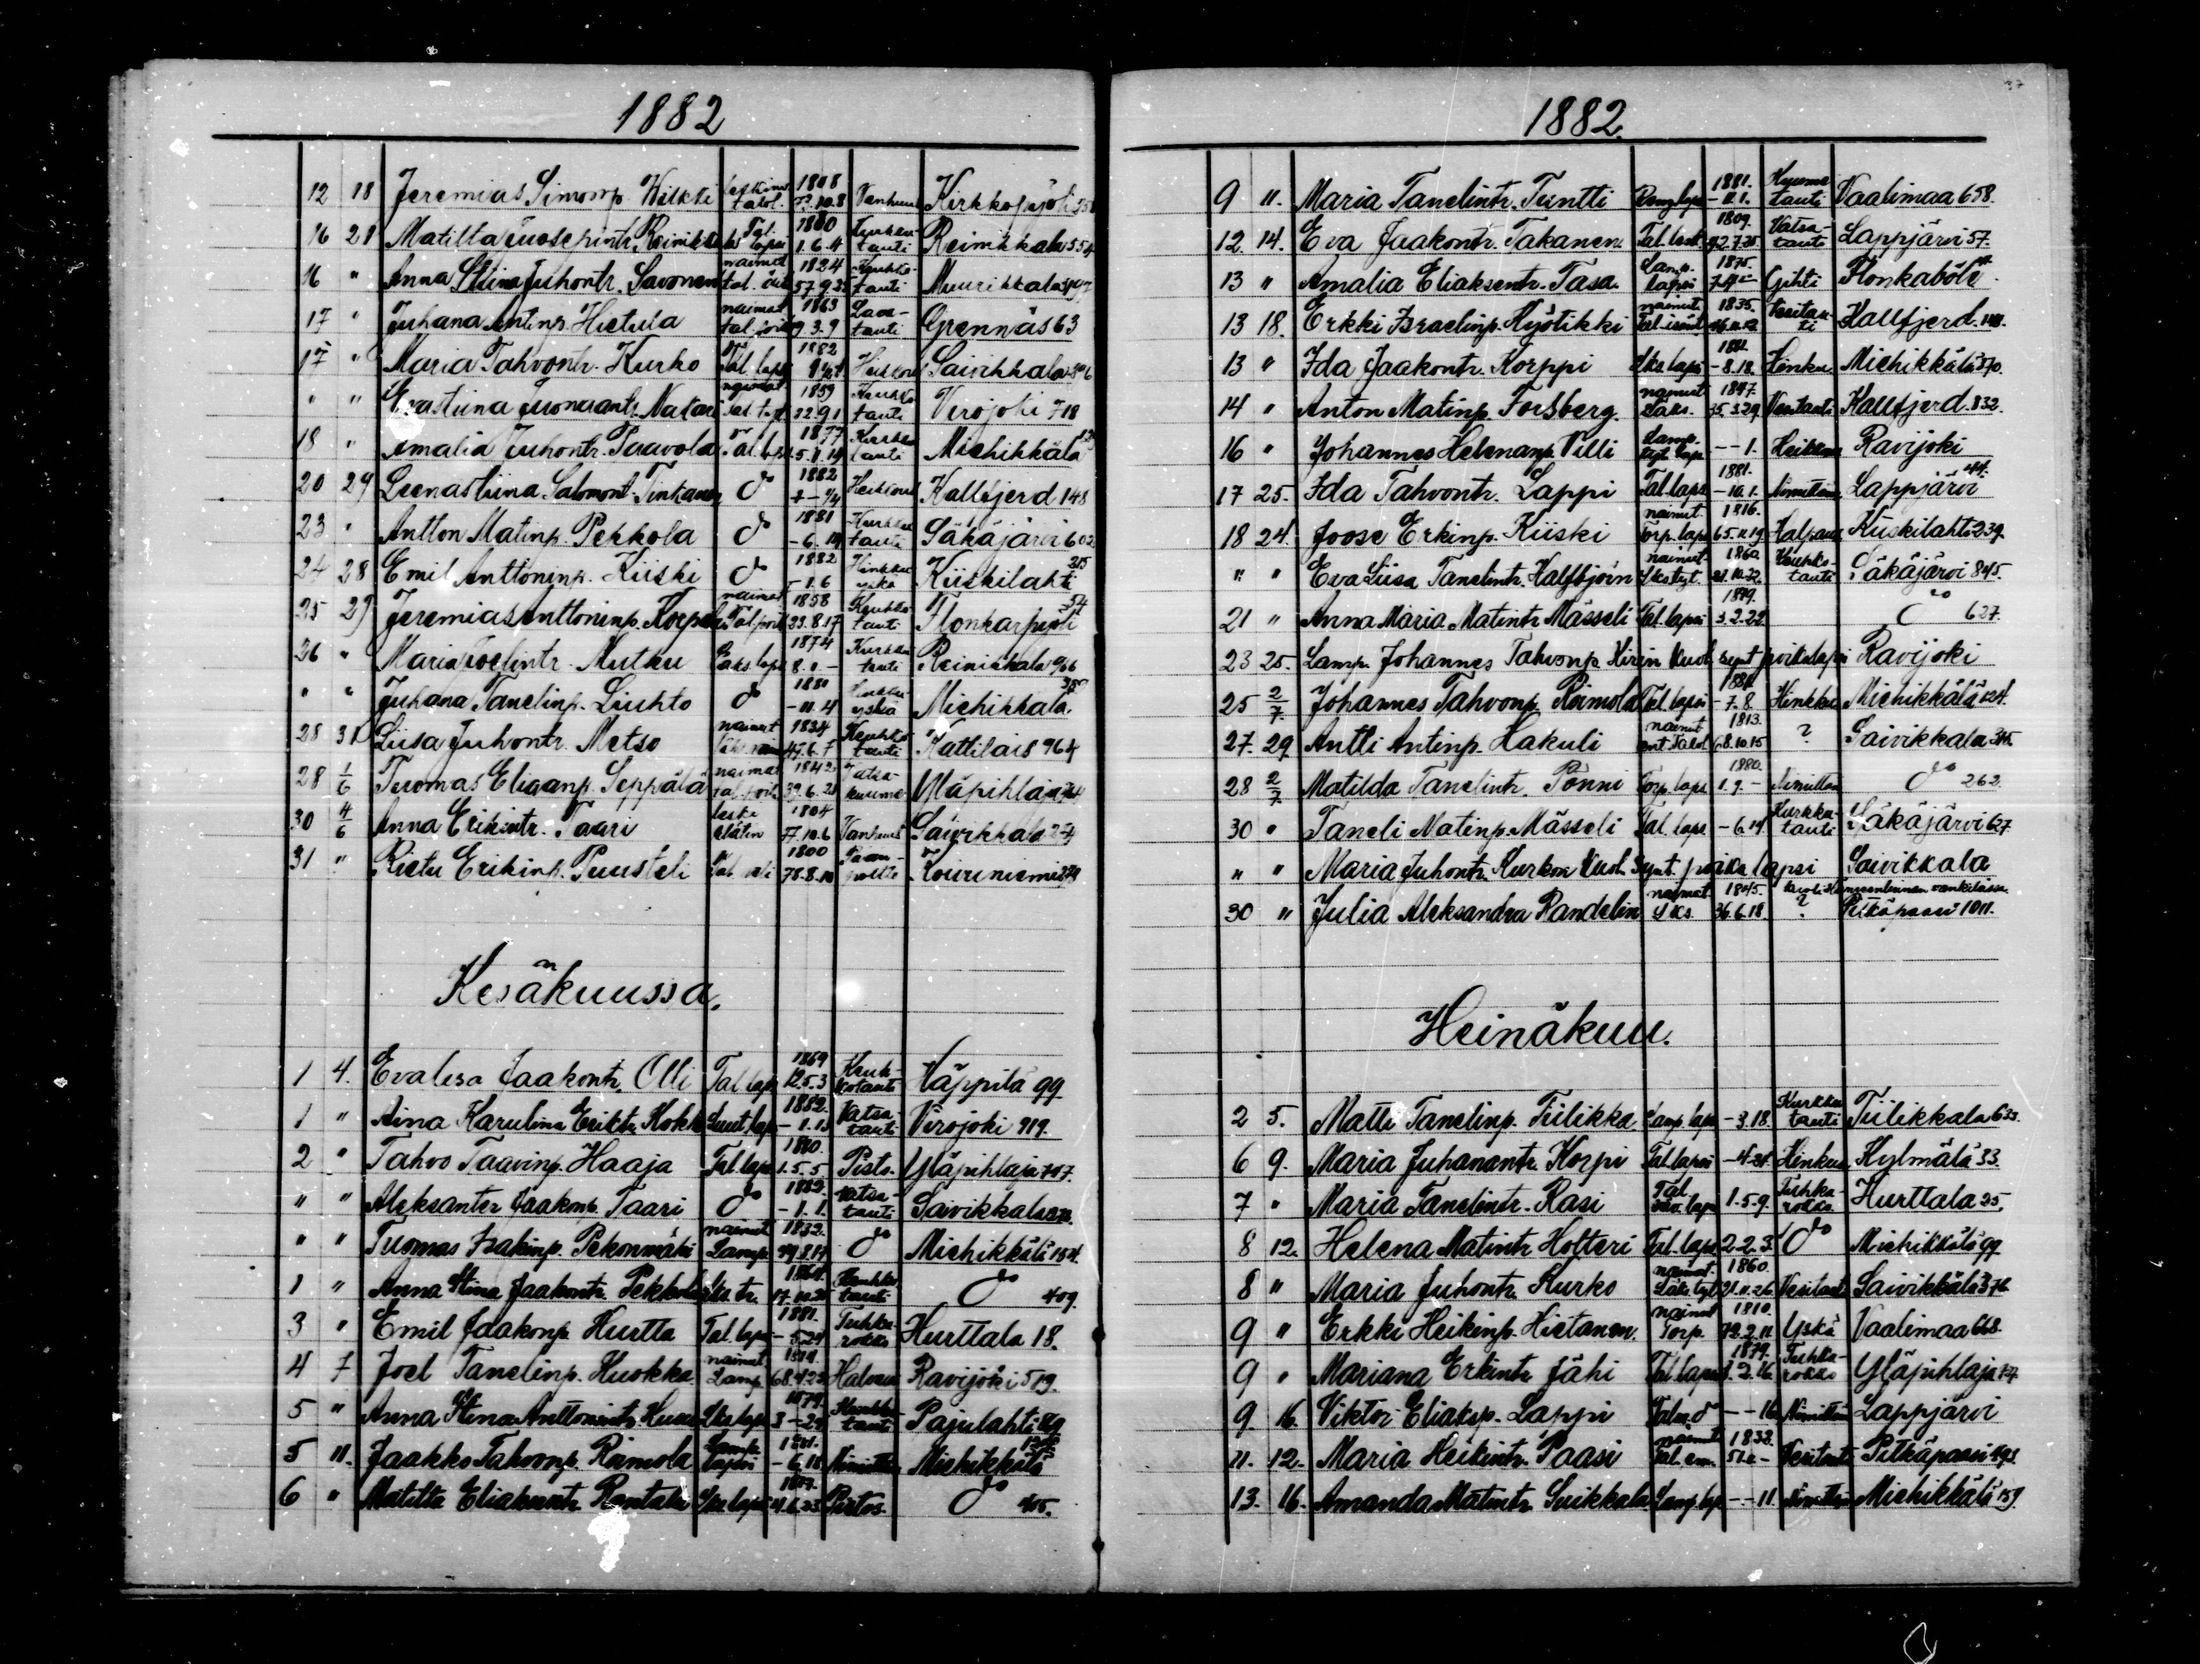 1882
12 18 Jeremias Simonp. Wilkki 1808 Vanhuus Kirkkopyöli
16 21 Matilta Tuosepintr. Reinikk Tal. lapsi 1880 1.6.4 Kurkku tauti Reinikkala 554
16 " Anna Stiina Juhontr. Savonen naimat tal. 1824 57.9.2 Keuhko tauti Muurikkala
17 " Juhana Antinp. Hietula naimat tal. poik 1863 19.3.9 Lava- tauti Grennäs 63
17 " Maria Tahvontr. Kurko Tal. laps 1882 Heikkous Saivikkala
" " Evastiina Juonaantr. Nakari naimat tal. tyt 1859 22.9.1 Keuhko tauti Virojoki 718
18 " Amalia Juhontr. Paavola Tal. laps 1877 5.1.19 Kurkku tauti Miehikkälä
20 29 Leenastiina Salomont. Tinkanen do 1882 Heikkous Kallfjerd 148
23 " Antton Matinp. Pekkola do 1881 - 6.14 Kurkku tauti Säkäjärvi 602
24 28 Emil Anttoninp. Kiiski do 1882 - 1.6 Hinkku yskä Kiiskilahti 215
25 29 Jeremias Anttoninp. Korpela naimat Tal. poik 1858 23.8.17 Keuhko tauti Flonkarpyöli 54
26 " Maria Joelintr. Mutku Laks. laps 1874 8.1.- Kurkku tauti Reinikkala 966
" " Juhana Tanelinp. Liuhto do 1881 - 11.4 Hinkku yskä Miehikkälä 350
28 31 Liisa Juhontr. Metso naimat 1834 47.6.7 Keuhko tauti Kattilais 964
28 1/6 Tuomas Eliganp. Seppälä naimat tal. poik 1842 39.6.21 Vatsa- kuume Yläpihlaja
30 4/6 Anna Erikintr. Taari leski elätin 1804 77.10.6 Vanhuus Saivikkala 274
31 " Rietu Erikinp. Puusteli 1800 78.8.10 Kouviniemi
Kesäkuussa.
1 4. Evalisa Jaakontr. Olli Tal. laps 1869 12.5.3 Keuh- kotauti Häppilä 99
1 " Aina Karulina Eriktr. Kokk 1882. - 1.13 Vatsa- tauti Virojoki 919.
2 " Tahvo Taavinp. Haaja Tal. laps 1880. 1.5.5 Pisto. Yläpihlaja 707.
" " Aleksanter Jaakonp. Taari do 1882. - 1.1. Vatsa- tauti Saivikkala
" " Tuomas Isakinp. Pekonmäki naimat Lamp. 1832. 49.8.14 do Miehikkälä 154.
1 " Anna Stina Jaakontr. Pekkola Iks. tr. 1864. 17.10.20 Keuhko tauti do 409.
3 " Emil Jaakonp. Hurtta Tal. laps 1881. - 5.24 Tuhka- rokko Hurttala 18.
4 7 Joel Tanelinp. Kuokka naimat. Lamp. 1814. 68.4.23 Halvaus Ravijoki 519.
5 " Anna Stina Anttonintr. Iks laps 1879. 3 - 29 Keuhko- tauti Pajulahti
5 11. Jaakko Tahvonp. Roimola Lamp. lapsi 1881. - 6.18 Nimitön Miehikkälä
6 " Matilta Eliaksentr. Rantala Iks. laps 1877. 4.6.23 Pistos. do 405.
1882.
37
9 11. Maria Tanelintr. Tuntti Reng. laps 1881. - 11.1. Kuume tauti Vaalimaa 658.
12. 14. Eva Jaakontr. Takanen Tal. lesk 1809. 72.7.25 Vatsa- tauti Lappjärvi 57.
13 " Amalia Eliaksentr. Tasa Lamp. lapsi 1875. 7.4.- Gihti Flonkaböle
13 18. Erkki Israelinp. Hyötikki naimut. Tal. isänt 1835. 46.11.12 Vesitau- ti Kallfjerd. 141.
13 " Ida Jaakontr. Korppi Iks. lapsi 1881. - 8.18. Hinku. Miehikkälä 370.
14 " Anton Matinp. Forsberg. naimut Laks. 1847. 35.3.29. Vesitauti Kallfjerd. 832.
16 " Johannes Helenanp. Villi Lamp. tyt. lap. - - 1. Heikkous Ravijoki
17 25. Ida Tahvontr. Lappi Tal. laps 1881. - 10.1. Nimittön Lappjärvi 44.
18 24. Joose Erkinp. Kiiski naimut. Torp. laps 1816. 65.11.19 Halpaus Kiiskilahti 239.
" " Eva Liisa Tanelintr. Halfbjörn naimut. Iks tyt. 1860. 21.10.22. Keuhko- tauti Säkäjärvi 845.
21 " Anna Maria Matintr. Mässeli Tal. lapsi 1879. 3.2.22. do 627.
23 25. Lamp. Johannes Tahvonp. Hirin kuol. synt. poikalapsi Ravijoki
25 2/7. Johannes Tahvonp. Roimola Tal. lapsi 1881. - 7.8. Hinkku Miehikkälä 124.
27. 29 Antti Antinp. Hakuli naimut ent. Talol 1813. 68.10.15 ? Saivikkala 345.
28 2/7. Matilda Tanelintr. Pönni Torp. laps 1880. 1.9.- Nimittön do 262.
30 " Taneli Matinp. Mässeli Tal. laps - 6.14. Kurkku- tauti Säkäjärvi 627
" " Maria Juhontr. Kurkon kuol. synt. poika lapsi Saivikkala
30 " Julia Aleksandra Randelin naimat Iks. 1845. 36.6.18. ? kuoli Hämeenlinnan vankilassa Pitkäpaasi 1011.
Heinäkuu.
2 5. Matti Tanelinp. Tiilikka Lamp. laps - 3.18. Kurkku tauti Tiilikkala 633.
6 9. Maria Juhanantr. Korpi Tal. lapsi - 4.24. Hinkua Kylmälä 33.
7 " Maria Tanelintr. Rasi Tal. laps 1.5.9. Tuhka- rokko Hurttala 25.
8 12. Helena Matintr. Hotteri Tal. laps 2.2.3 do Miehikkälä 99.
8 " Maria Juhontr. Kurko naimat. Laks tyt 1860. 21.11.26 Vesitauti Saivikkälä 376
9 " Erkki Heikinp. Hietanen. naimat Torp. 1810. 72.2.11. Yskä Vaalimaa 668.
9 " Mariana Erkintr. Jähi Tal. laps 1879. 3.2.16 Tuhka- rokko Yläpihlaja 74.
9. 16. Viktor Eliaksp. Lappi - - 16. Nimittön Lappjärvi
11. 12. Maria Heikintr. Paasi naimat Tal. em. 1832. Vesitauti Pitkäpaasi 893.
13. 16. Amanda Matintr. Suikkala Lamp. lap. - - 11. Nimittön Miehikkälä 159.